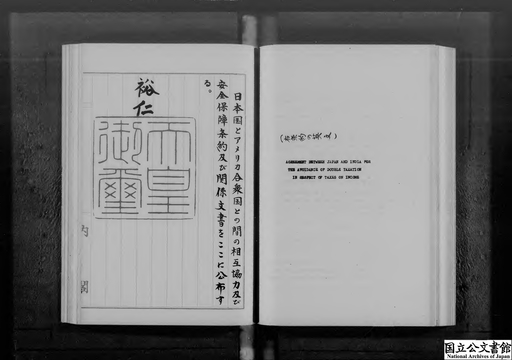 日本国とアメリカ合衆国との間の相互協力及び
安全保障条約及び関係文書をここに公布す
る。
裕仁
天皇
御璽
内閣
(右条約の英文)
AGREEMENT BETWEEN JAPAN AND INDIA FOR
THE AVOIDANCE OF DOUBLE TAXATION
IN RESPECT OF TAXES ON INCOME
国立公文書館
National Archives of Japan